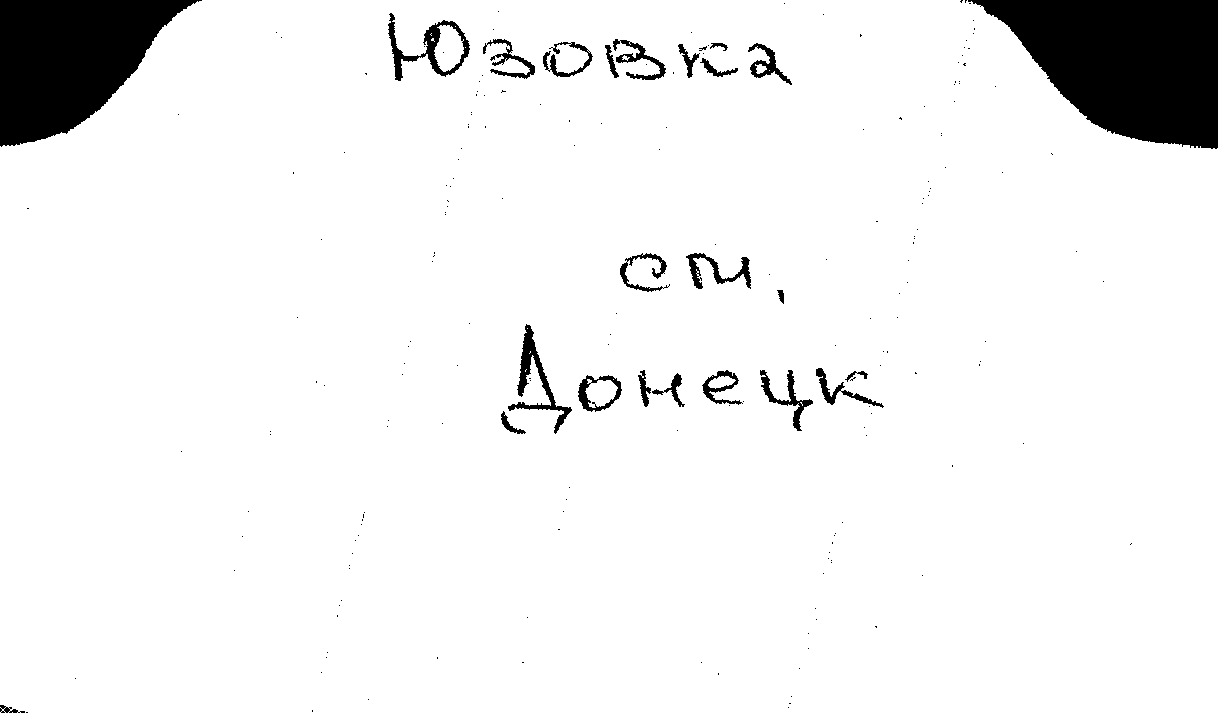 Юзовка
см.
Донецк